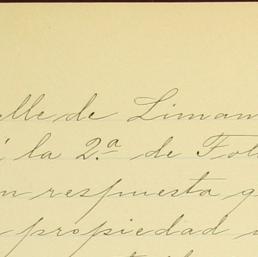 lle de Liman
la 2.ª de Fol
n respuesta q
propiedad